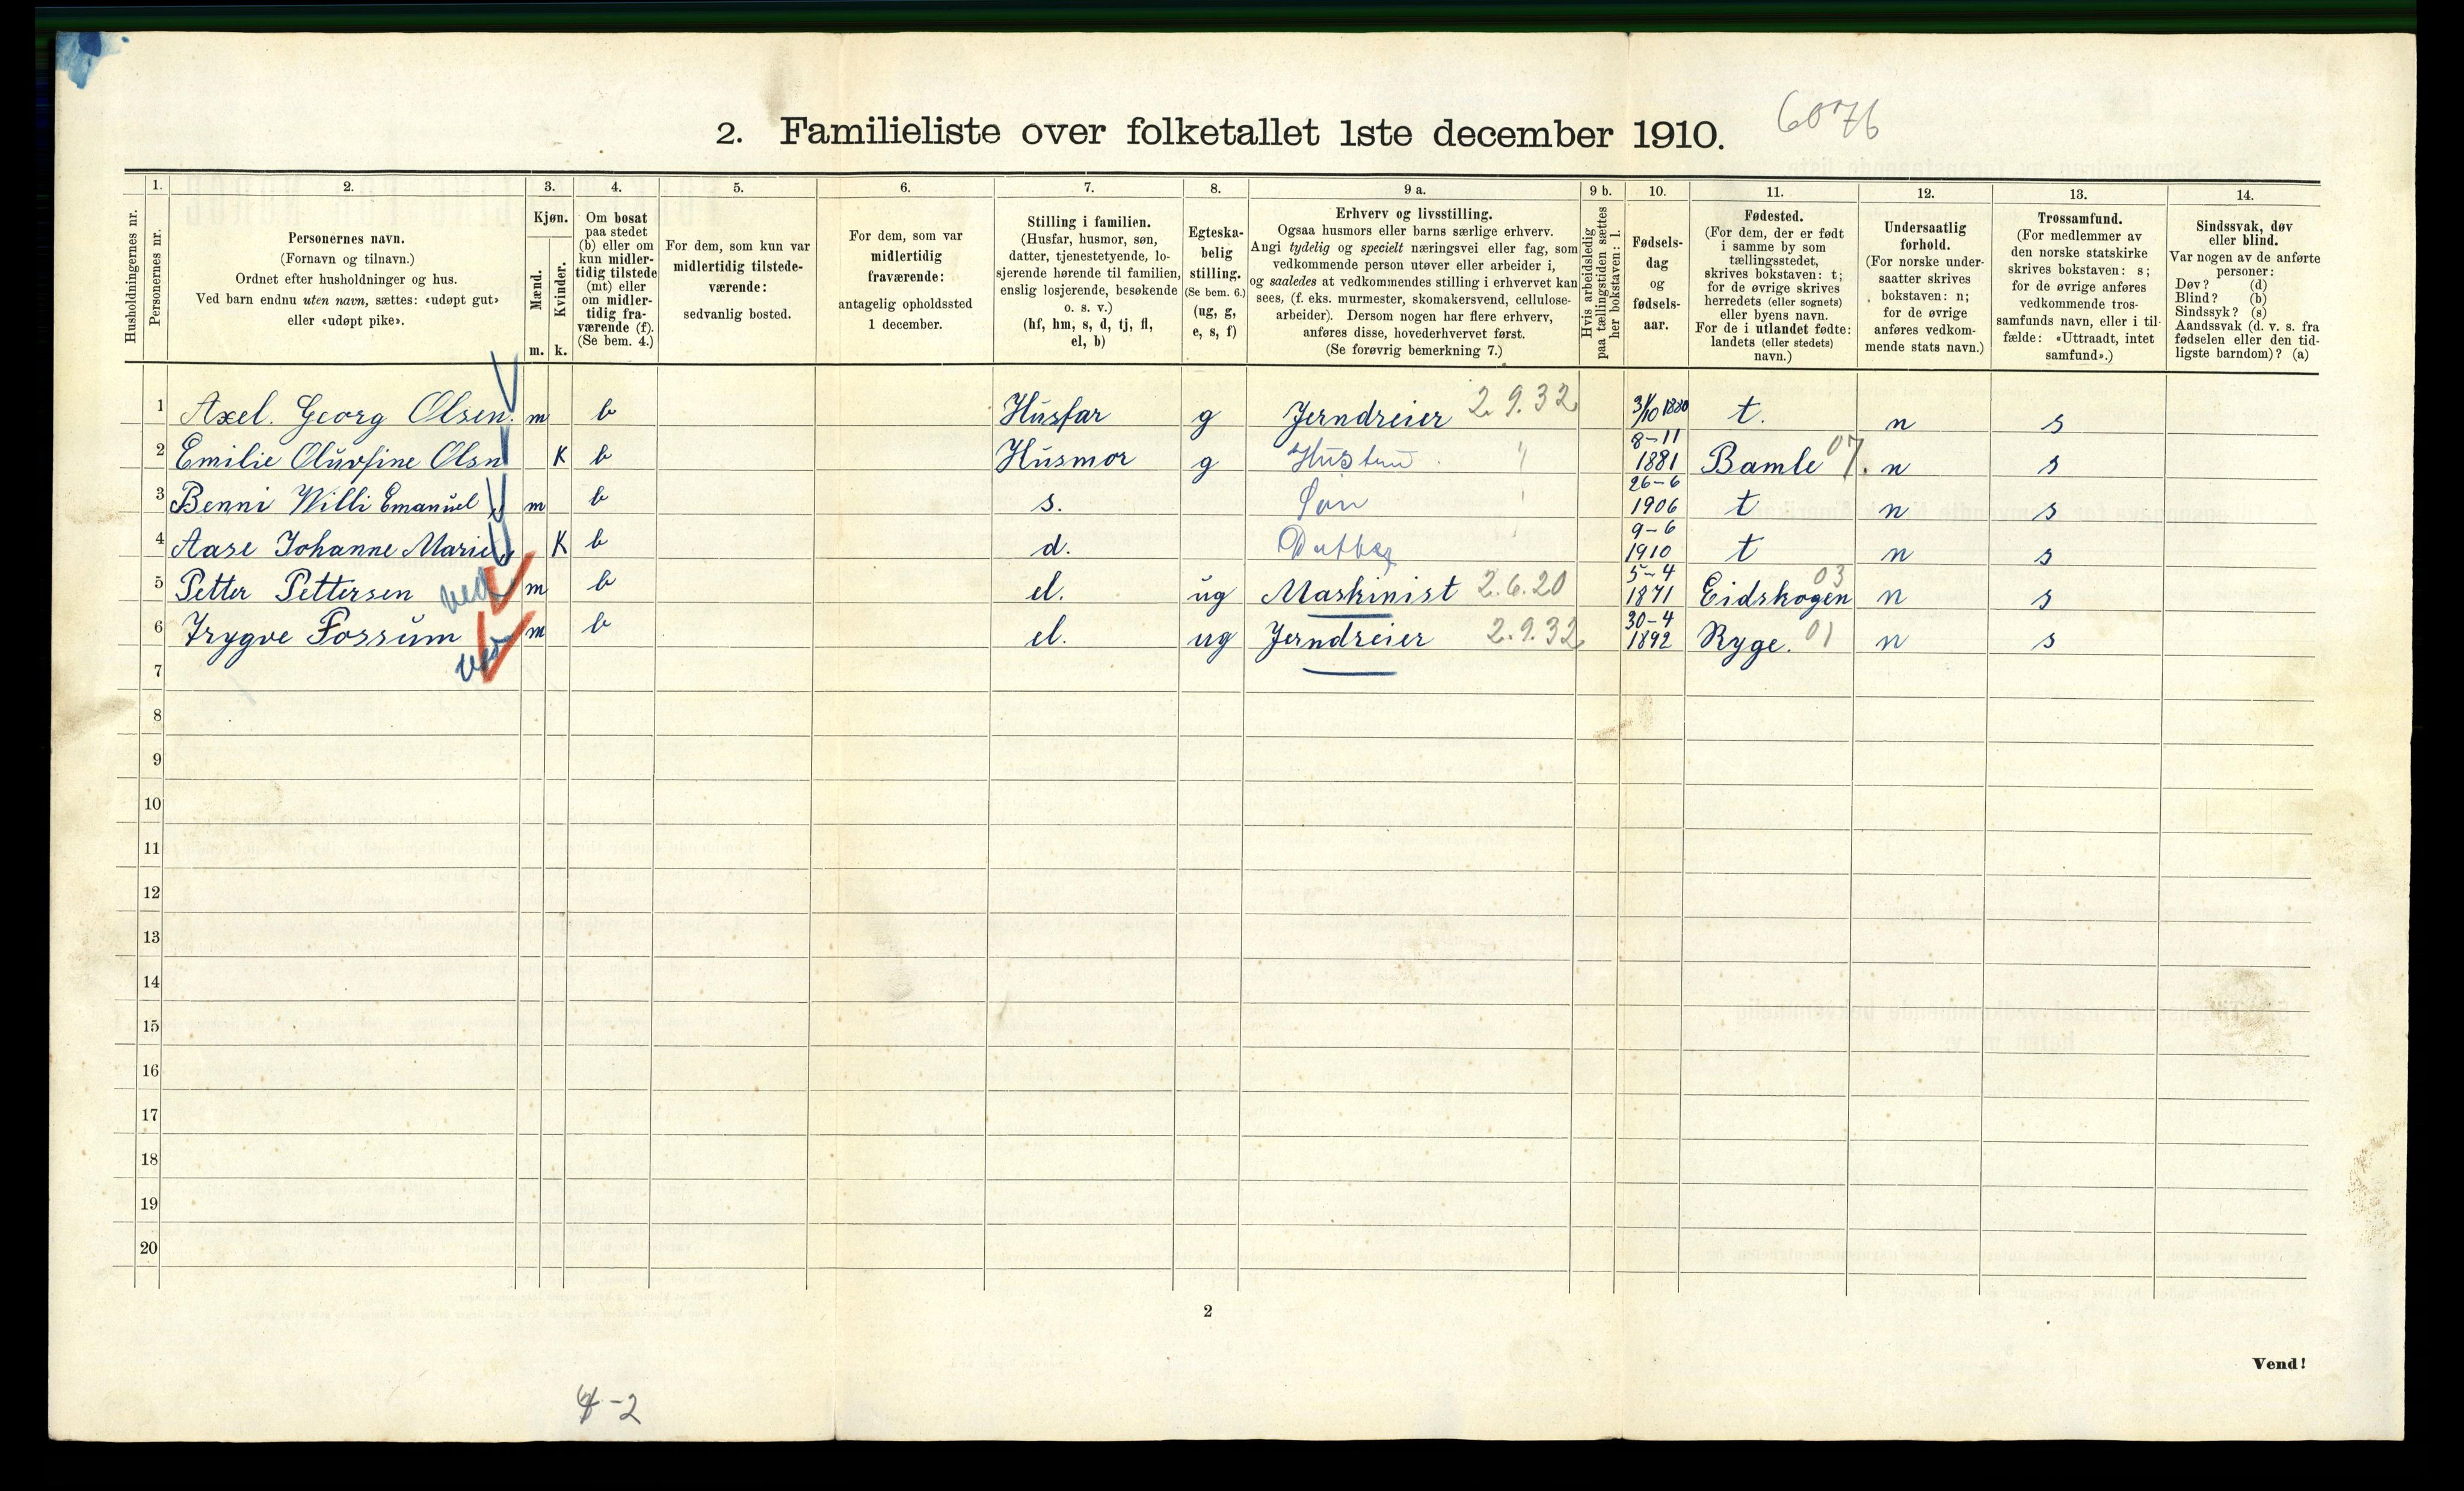 6076
2. Familieliste over folketallet 1ste december 1910.
1. 2. 3. 4. 5. 6. 7. 8. 9 a. 9 b. 10. 11. 12. 13. 14.
Husholdningernes nr.
Personernes nr.
Personernes navn.
(Fornavn og tilnavn.)
Ordnet efter husholdninger og hus.
Ved barn endnu uten navn, sættes: «udøpt gut»
eller «udøpt pike».
Kjøn.
Mænd.
m.
Kvinder.
k.
Om bosat
paa stedet
(b) eller om
kun midler-
tidig tilstede
(mt) eller
om midler-
tidig fra-
værende (f).
(Se bem. 4.)
For dem, som kun var
midlertidig tilstede-
værende:
sedvanlig bosted.
For dem, som var
midlertidig
fraværende:
antagelig opholdssted
1 december.
Stilling i familien.
(Husfar, husmor, søn,
datter, tjenestetyende, lo-
sjerende hørende til familien,
enslig losjerende, besøkende
o. s. v.)
(hf, hm, s, d, tj, fl,
el, b)
Egteska-
belig
stilling.
(Se bem. 6.)
(ug, g,
e, s, f)
Erhverv og livsstilling.
Ogsaa husmors eller barns særlige erhverv.
Angi tydelig og specielt næringsvei eller fag, som
vedkommende person utøver eller arbeider i,
og saaledes at vedkommendes stilling i erhvervet kan
sees, (f. eks. murmester, skomakersvend, cellulose-
arbeider). Dersom nogen har flere erhverv,
anføres disse, hovederhvervet først.
(Se forøvrig bemerkning 7.)
Hvis arbeidsledig
paa tællingstiden sættes
her bokstaven: l.
Fødsels-
dag
og
fødsels-
aar.
Fødested.
(For dem, der er født
i samme by som
tællingsstedet,
skrives bokstaven: t;
for de øvrige skrives
herredets (eller sognets)
eller byens navn.
For de i utlandet fødte:
landets (eller stedets)
navn.)
Undersaatlig
forhold.
(For norske under-
saatter skrives
bokstaven: n;
for de øvrige
anføres vedkom-
mende stats navn.)
Trossamfund.
(For medlemmer av
den norske statskirke
skrives bokstaven: s;
for de øvrige anføres
vedkommende tros-
samfunds navn, eller i til-
fælde: «Uttraadt, intet
samfund».)
Sindssvak, døv
eller blind.
Var nogen av de anførte
personer:
Døv? (d)
Blind? (b)
Sindssyk? (s)
Aandssvak (d. v. s. fra
fødselen eller den tid-
ligste barndom)? (a)
1 Axel. Georg Olsen. m b Husfar g Jerndreier 2.9.32 3/10 1880 t. n s
2 Emilie Olufine Olsn K b Husmor g Hustru " 8-11 1881 Bamle 07. n s
3 Benni Willi Emanuel " m b s. Søn 26-6 1906 t n s
4 Aase Johanne Marie " K b d. Datter 9-6 1910 t n s
5 Petter Pettersen ved m b el. ug Maskinist 2.6.20 5-4 1871 Eidskogen 03 n s
6 Trygve Fossum ved m b el. ug Jerndreier 2.9.32 30-4 1892 Ryge. 01 n s
7
8
9
10
11
12
13
14
15
16
17
18
19
20
2
Vend!
4-2